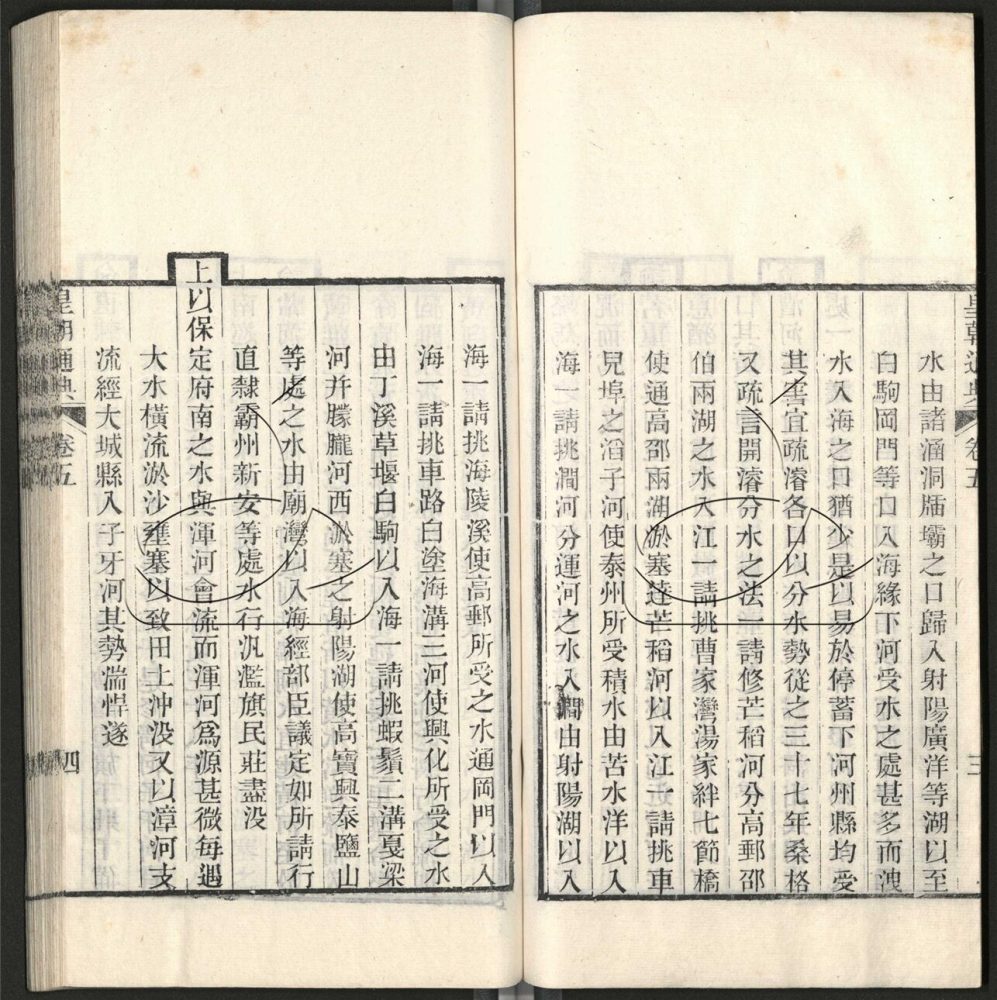 皇朝通典 卷五 三
水由諸涵洞牐壩之口歸入射陽廣洋等湖以至
白駒岡門等口入海緣下河受水之處甚多而洩
水入海之口猶少是以易於停蓄下河州縣均受
其害宜疏濬各口以分水勢從之三十七年桑格
又疏言開濬分水之法一請修芒稻河分高郵邵
伯兩湖之水入江一請挑曹家灣湯家絆七節橋
使通高邵兩湖淤塞達芒稻河以入江一請挑車
兒埠之滔子河使泰州所受積水由苦水洋以入
海一請挑澗河分運河之水入澗由射陽湖以入
海一請挑海陵溪使高郵所受之水通岡門以入
海一請挑車路白塗海溝三河使興化所受之水
由丁溪草堰白駒以入海一請挑蝦鬚二溝戛梁
河并朦朧河西淤塞之射陽湖使高寶興泰鹽山
等處之水由廟灣以入海經部臣議定如所請行
直隸霸州新安等處水行汎濫旗民莊盡没
上以保定府南之水與渾河會流而渾河爲源甚微每遇
大水橫流淤沙壅塞以致田土沖没又以漳河支
流經大城縣入子牙河其勢湍悍遂
皇朝通典 卷五 四